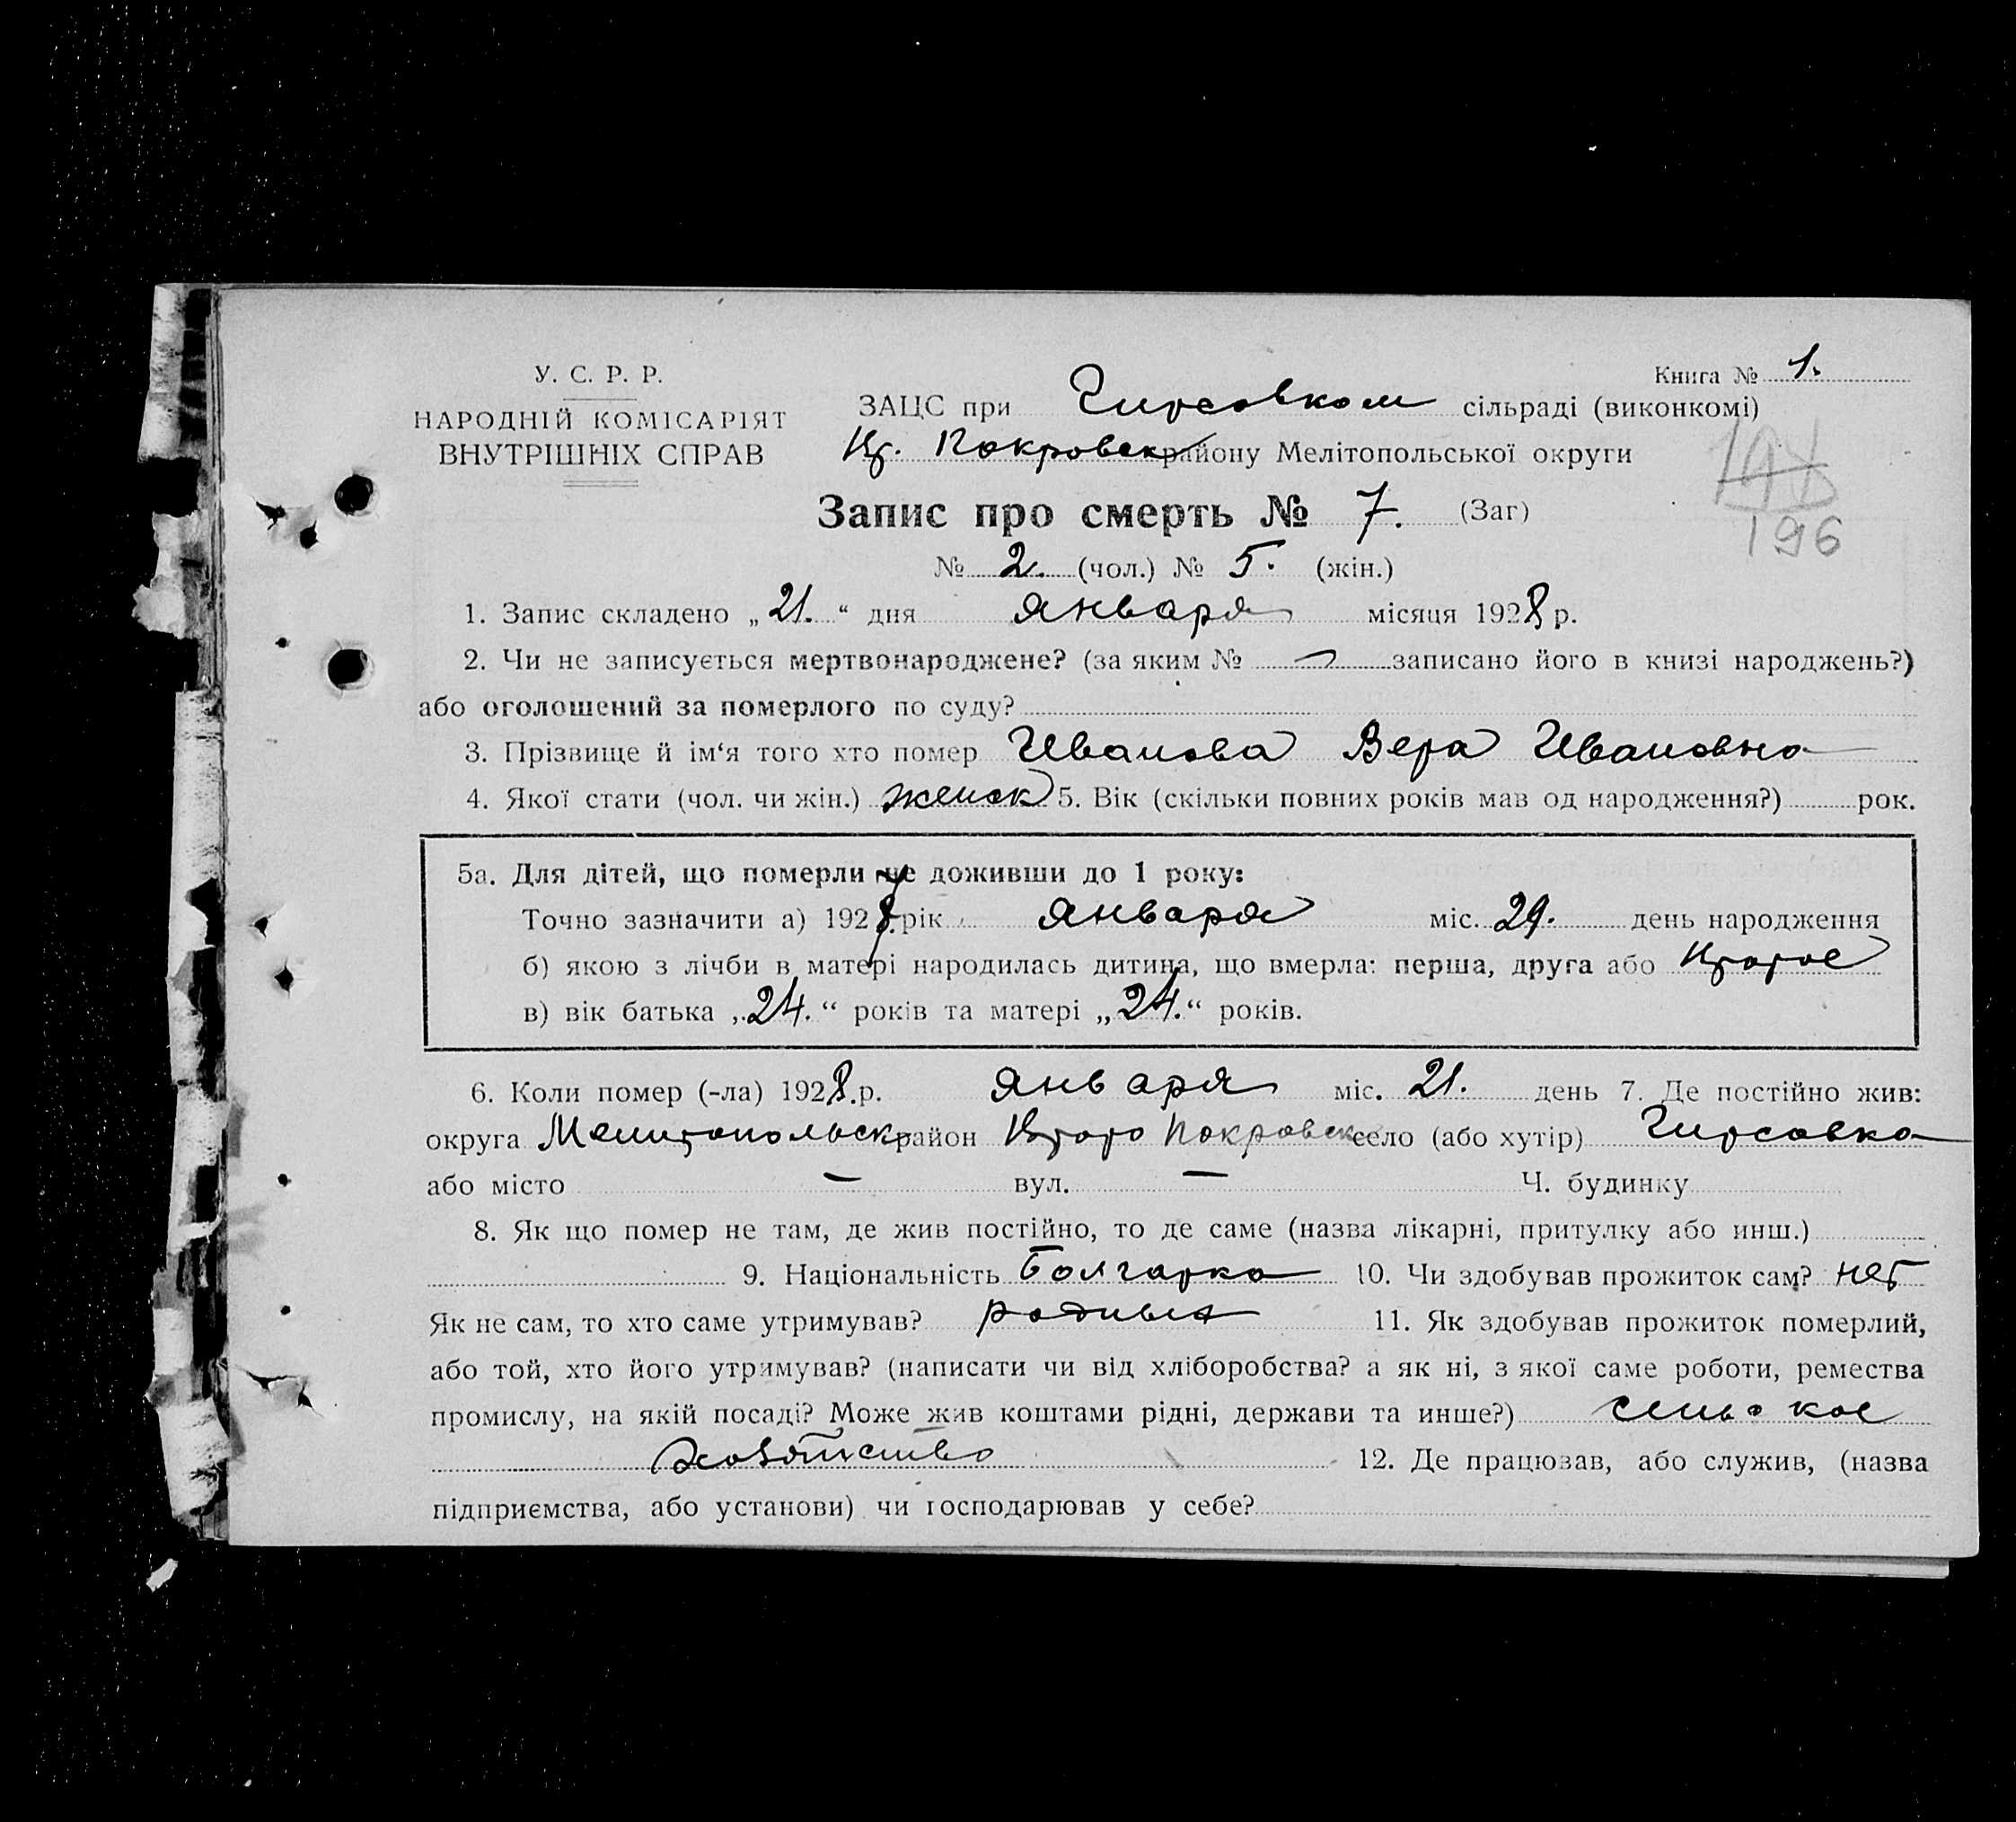 У. С. Р. Р.
НАРОДНІЙ КОМІСАРІЯТ
ВНУТРІШНІХ СПРАВ
Книга № 1.
ЗАЦС при Гирсовком сільраді (виконкомі)
Вт. Покровск району Мелітопольської округи
196
Запис про смерть № 7. (Заг)
№ 2. (чол.) № 5. (жін.)
1. Запис складено „21.“ дня января місяця 1928 р.
2. Чи не записується мертвонароджене? (за яким № — записано його в книзі народжень?)
або оголошений за померлого по суду?
3. Прізвище й ім‘я того хто помер Иванова Вера Ивановна
4. Якої стати (чол. чи жін.) женск 5. Вік (скільки повних років мав од народження?) рок.
5а. Для дітей, що померли не доживши до 1 року:
Точно зазначити а) 1927 рік января міс. 29. день народження
б) якою з лічби в матері народилась дитина, що вмерла: перша, друга або второе
в) вік батька „24.“ років та матері „24.“ років.
6. Коли помер (-ла) 1928. р. января міс. 21. день 7. Де постійно жив:
округа Мелитопольск район Второ Покровск село (або хутір) Гирсовка
або місто — вул. — Ч. будинку
8. Як що помер не там, де жив постійно, то де саме (назва лікарні, притулку або инш.)
9. Національність Болгарка 10. Чи здобував прожиток сам? нет
Як не сам, то хто саме утримував? родные 11. Як здобував прожиток померлий,
або той, хто його утримував? (написати чи від хліборобства? а як ні, з якої саме роботи, ремества
промислу, на якій посаді? Може жив коштами рідні, держави та инше?) сельское
хозяйство 12. Де працював, або служив, (назва
підприємства, або установи) чи господарював у себе?